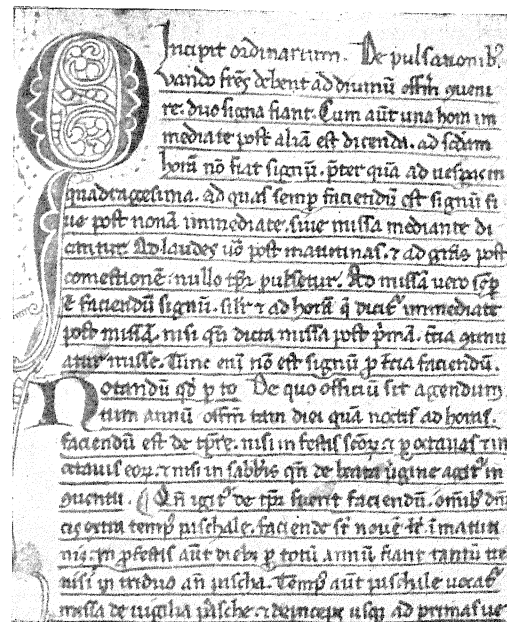 Incipit ordinarium. De pulsationib⁹
Quando fr̄es debent ad diuinū offm̄ ꝯueni
re. duo signa fiant. Cum aūt una hora im
mediate post aliā est dicenda. ad scd̄am
horā nō fiat signū. p̄ter quā ad uesp̄as in
quadragesima. ad quas semp̄ faciendū est signū si
ue post nonā immediate. siue missa mediante di
cantur. Ad laudes uō post matutinas. ⁊ ad grās post
comestionē. nullo tp̄r pulsetur. Ad missā uero semp̄
ē faciendū signū. silr ⁊ ad horā q̄ dicit᷑ immediate
post missā. nisi qn̄ dicta missa post p̄mā. t̄cia ꝯtinu
atur misse. Tunc eni nō est signū p t̄cia faciendū.
Notandū qd̄ p to De quo officiū sit agendum
tum annū offm̄ tam diei quā noctis ad horas.
faciendū est de tp̄re. nisi in festis sc̄oꝝ ⁊ p octauas ⁊ in
octauis eoꝝ ⁊ nisi in sabb̄is qn̄ de beata ūgine agit᷑ in
ꝯuentu. Qn̄ igit᷑ de tp̄r fuerit faciendū. omīb⁹ dn̄i
cis extra temp⁹ paschale. faciende st̄ nouē lc̄. ī matuti
nis. in p̄festis aūt dieb⁹ p totū annū fiant tantū tres
nisi in triduo an̄ pascha. Temp⁹ aūt paschale uocat᷑
missa de uigilia pasche. ⁊ deinceps usq̄ ad primas ue